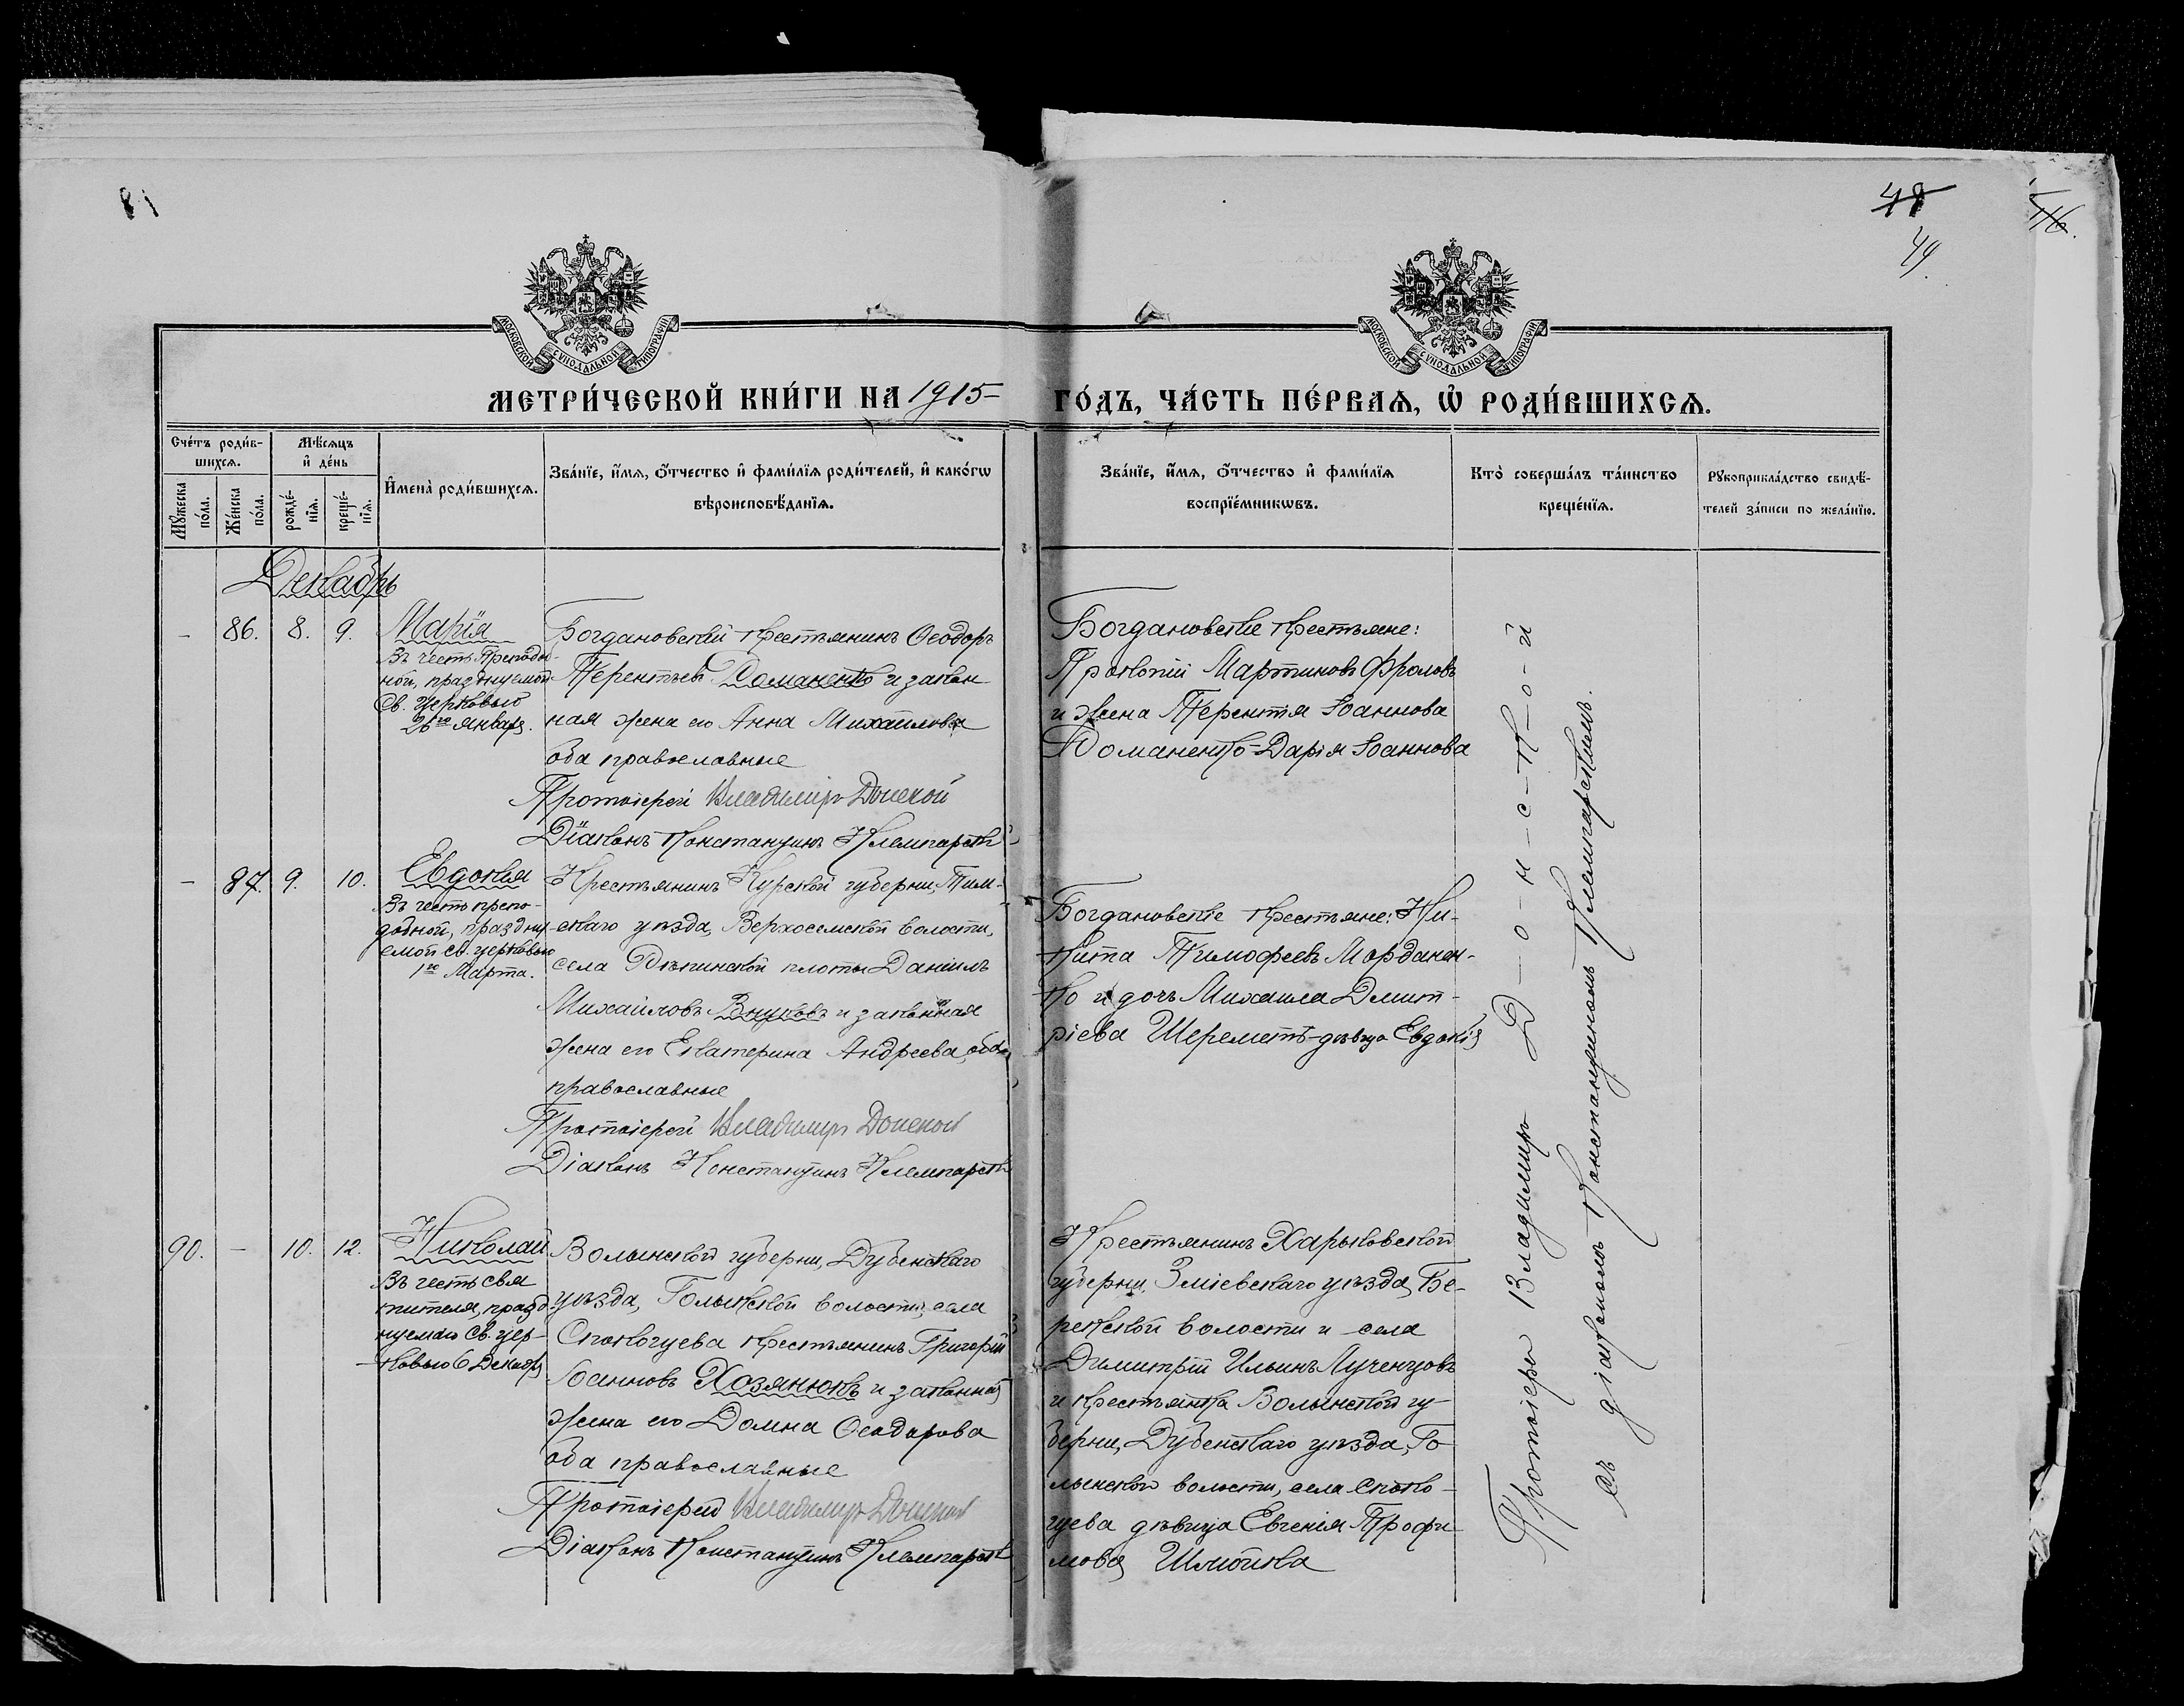 81
48
49.
116.
МОСКОВСКОЙ СУНОДАЛЬНОЙ ТИПОГРАФІИ
МОСКОВСКОЙ СУНОДАЛЬНОЙ ТИПОГРАФІИ
МЕТРИ́ЧЕСКОЙ КНИ́ГИ НА 1915 ГО́ДЪ, ЧА́СТЬ ПЕ́РВАѦ, Ѡ҆ РОДИ́ВШИХСѦ.
Сче́тъ роди́в-
шихсѧ.
Мѣ́сѧцъ
и҆ де́нь
Мꙋ́жеска
по́ла.
Же́нска
по́ла.
рожде́-
нїѧ.
креще́-
нїѧ.
И҆мена̀ роди́вшихсѧ.
Зва́нїе, и҆́мѧ, ѻ҆́тчество и҆ фами́лїѧ роди́телей, и҆ како́гѡ
вѣроисповѣ́данїѧ.
Зва́нїе, и҆́мѧ, ѻ҆́тчество и҆ фами́лїѧ
воспрїе́мникѡвъ.
Кто̀ соверша́лъ та́инство
креще́нїѧ.
Рꙋкоприкла́дство свидѣ́-
телей за́писи по жела́нїю.
Декабрь
– 86. 8. 9.
Марія
Въ честь Преподоб-
ной, празднуемой
Св. Церковью
26го Января.
Богдановскій крестьянинъ Ѳеодоръ
Терентьевъ Доманенко и закон-
ная жена его Анна Михайлова
оба православные
Протоіерей Владимиръ Донской
Діаконъ Константинъ Клемпарскій
Богдановскіе крестьяне:
Прокопій Мартиновъ Фроловъ
и жена Терентія Іоаннова
Доманенко-Дарія Іоаннова
– 87. 9. 10.
Евдокія
Въ честь препо-
добной, праздну-
емой св. церковью
1го Марта.
Крестьянинъ Курской губерніи, Тим-
скаго уѣзда, Верхосемской волости,
села плоты Даніилъ
Михаиловъ Внуковъ и законная
жена его Екатерина Андреева, оба
православные
Протоіерей Владимиръ Донской
Діаконъ Константинъ Клемпарскій
Богдановскіе крестьяне: Ни-
кита Тимофеевъ Морданен-
ко и дочь Михаила Дмит-
ріева Шереметъ-дѣвица Евдокія
90. – 10. 12.
Николай
Въ честь свя
тителя, празд
нуемаго св. цер-
ковью 6 Декабря
Волынской губерніи, Дубенскаго
уѣзда, волости, села
крестьянинъ Григорій
Іоанновъ Хозянюкъ и законная
жена его Домна Ѳеодорова
оба православные
Протоіерей Владимиръ Донской
Діаконъ Константинъ Клемпарскій
Крестьянинъ Харьковской
губерніи, Зміевскаго уѣзда, Бе-
рекской волости и села
Димитрій Ильинъ Лученцовъ
и крестьянка Волынской гу-
берніи, Дубенскаго уѣзда,
волости, села
дѣвица Евгенія Трофи
мова
Протоіерей Владимиръ Д–о–н–с–к–о–й
съ діакономъ Константиномъ Клемпарскимъ.